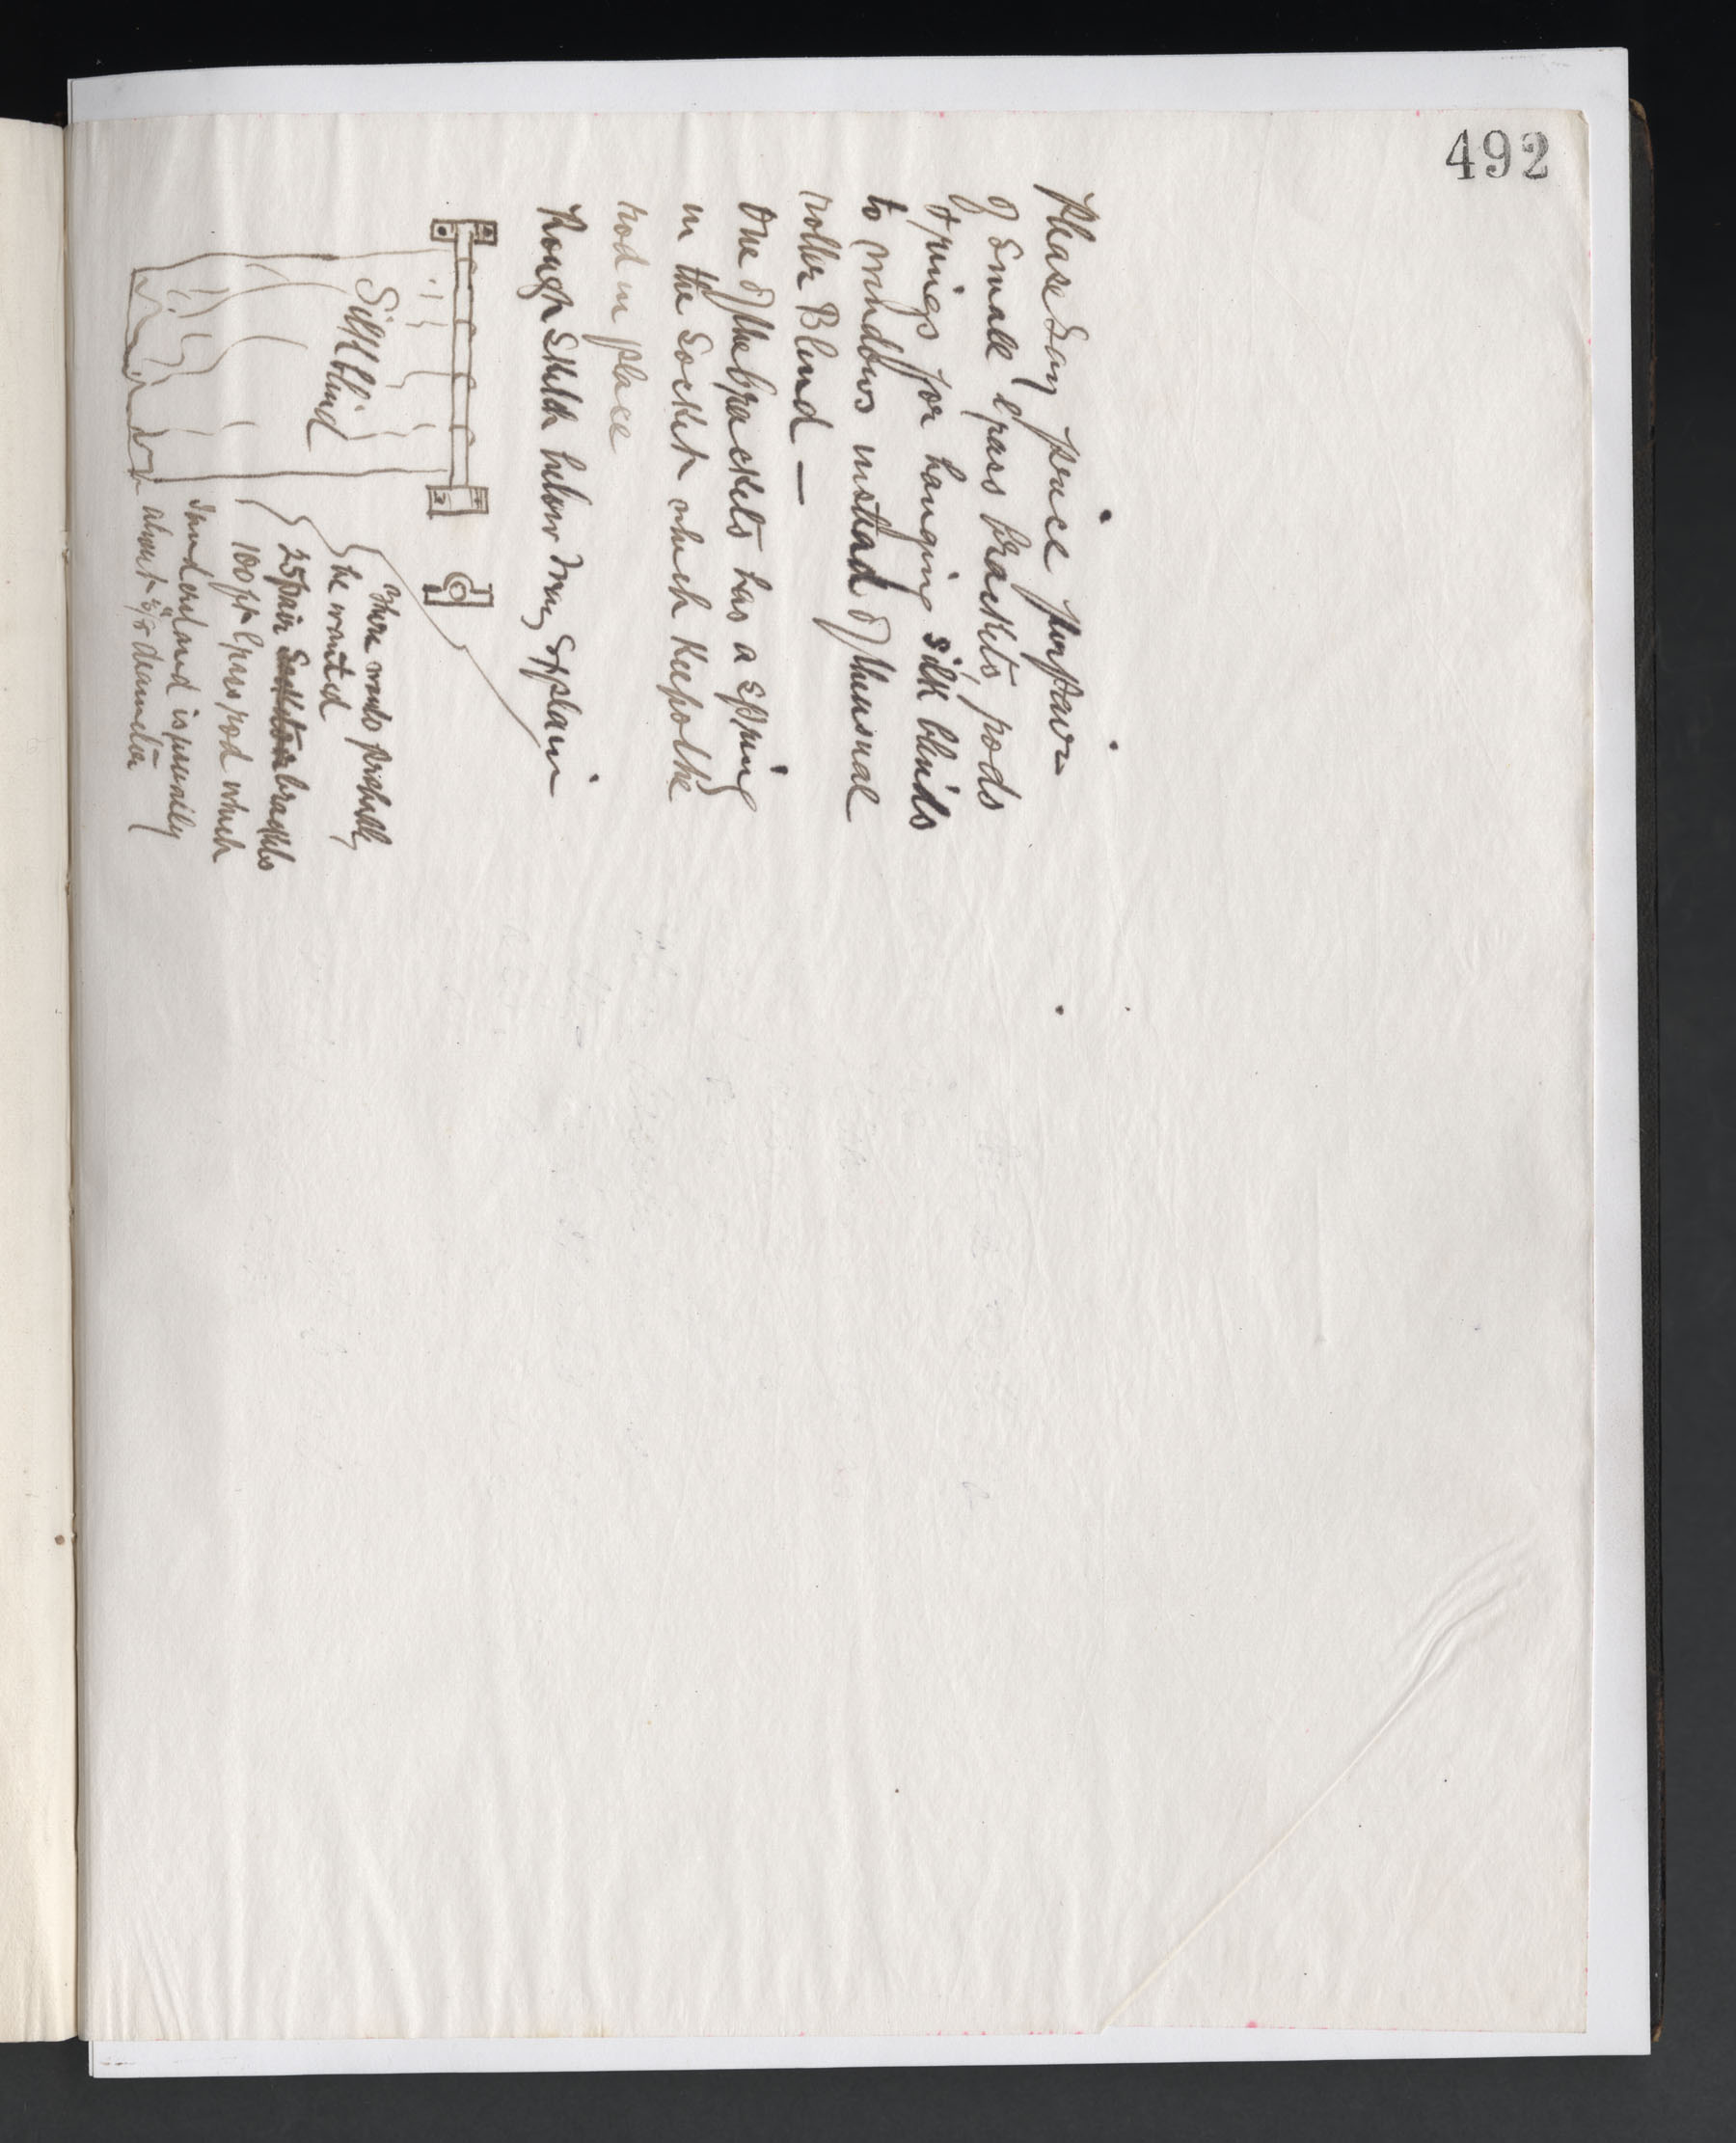 492
Please say price per pair
of small brass brackets, rods
& springs for hanging silk blinds
to windows instead of the usual
roller Blind —
One of the brackets has a spring
in the Socket which keeps the
rod in place
Rough sketch below may explain
Silk blind
There would probably
be wanted
25 pair brackets
100 ft brass rod which
I understand is usually
about 3/8 diameter